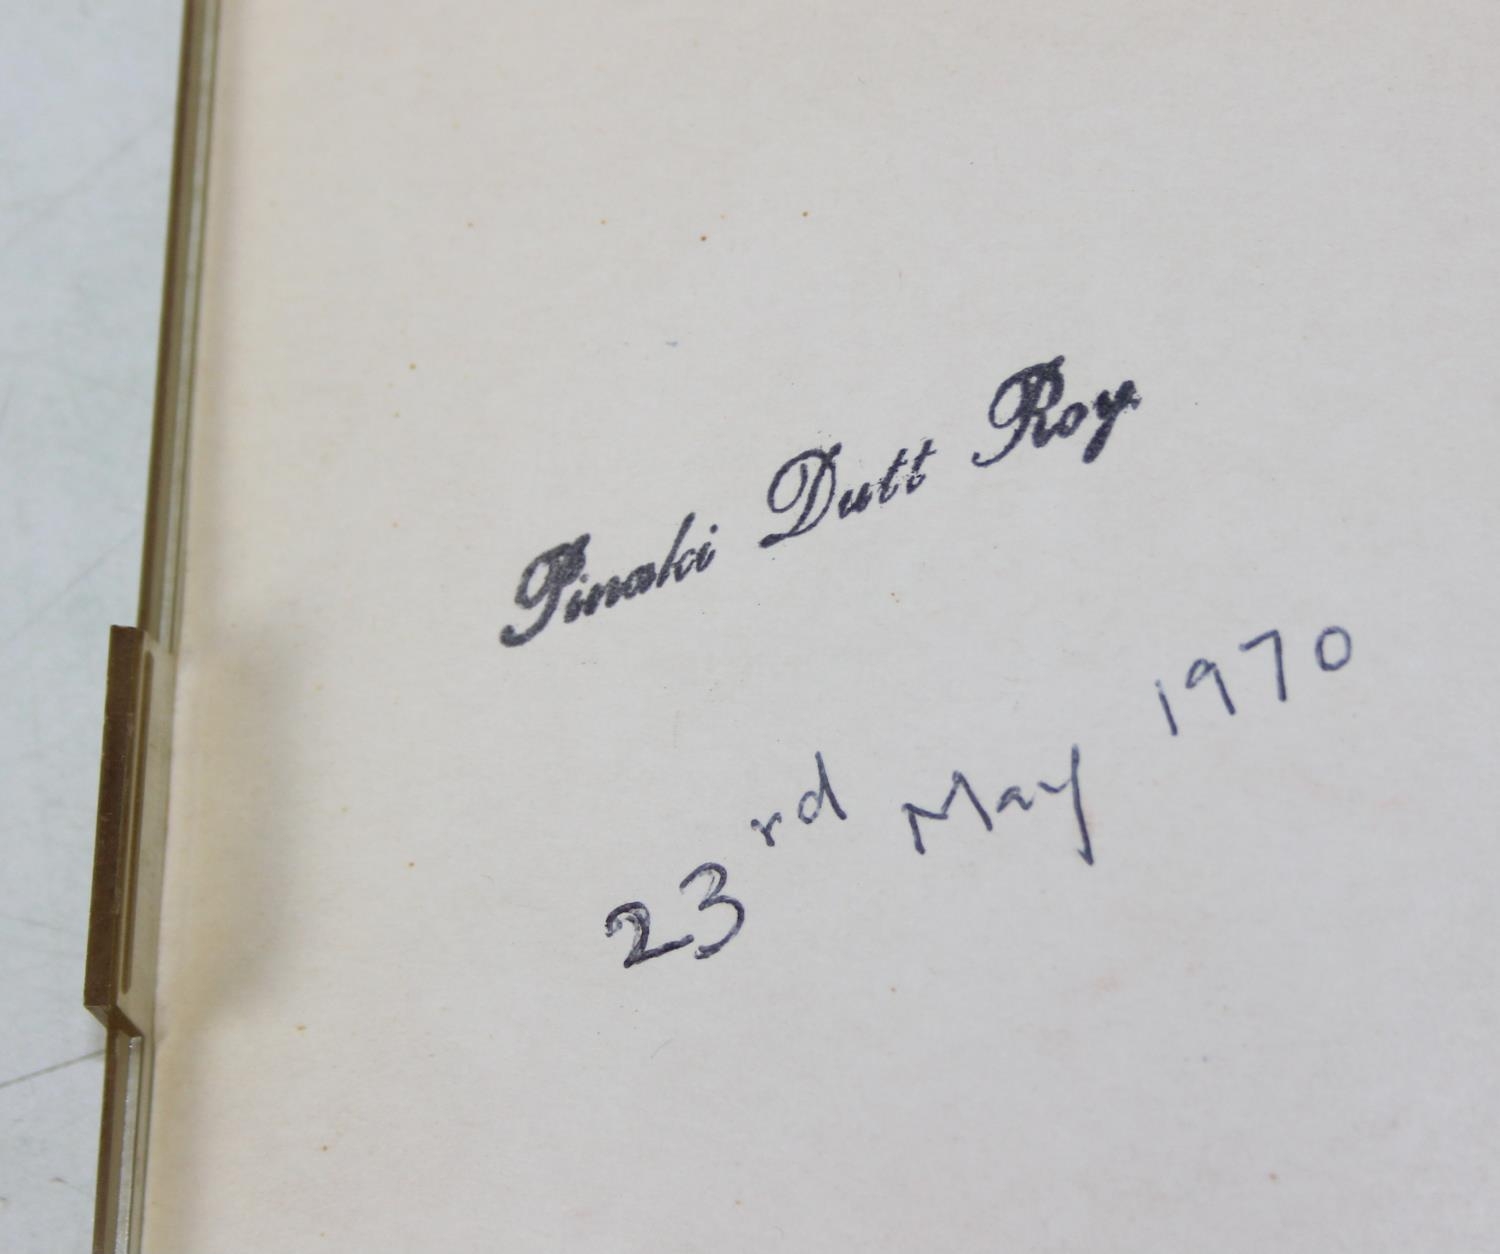 Pinaki Dutt Roy
23rd May 1970